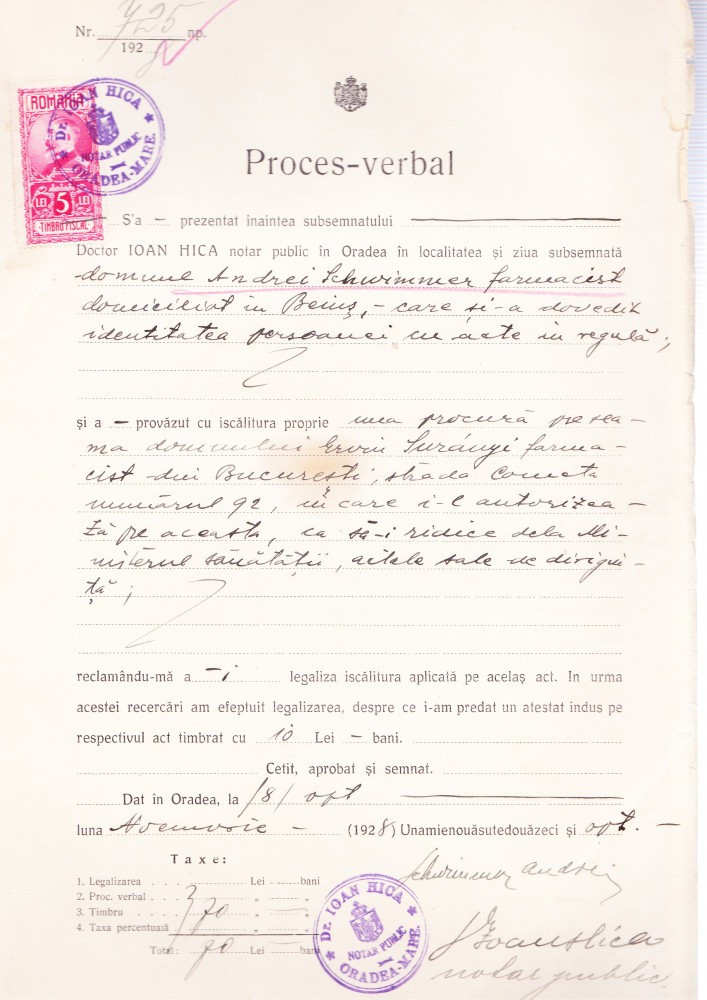 Nr. 725 np.
1928
ROMANIA
LEI 5 LEI
TIMBRU FISCAL
Dr. IOAN HICA
NOTAR PUBLIC
ORADEA-MARE.
Proces-verbal
S'a — prezentat înaintea subsemnatului
Doctor IOAN HICA notar public în Oradea în localitatea și ziua subsemnată
domnul Andrei Schwimmer farmacist
domiciliat in Beiuș, - care și-a dovedit
identitatea persoanei cu acte in regulă;
și a — provăzut cu iscălitura proprie una procură pe sea-
ma domnului Ervin Surányi farma-
cist din București, strada Cometa
numărul 92, in care i-l autorizea-
ză pe aceasta, ca să-i ridice dela Mi-
nisterul sănătății, actele sale de dirigin-
ță;
reclamându-mă a — i legaliza iscălitura aplicată pe acelaș act. In urma
acestei recercări am efeptuit legalizarea, despre ce i-am predat un atestat indus pe
respectivul act timbrat cu 10 Lei — bani.
Cetit, aprobat și semnat.
Dat în Oradea, la /8/ opt
luna Noemvrie — (1928) Unamienouăsutedouăzeci și opt. —
Taxe:
1. Legalizarea . . . Lei bani
2. Proc. verbal . " — "
3. Timbru . . . 70 " — "
4. Taxa percentuală " "
Total: 70 Lei — bani
Schwimmer Andrei
Dr. IOAN HICA
NOTAR PUBLIC
ORADEA-MARE.
Dr Ioan Hica
notar public.